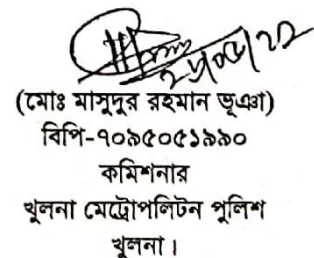 ২৮/০৮/২২
(মোঃ মাসুদুর রহমান ভূঞা)
বিপি-৭০৯৫০৫১৯৯০
কমিশনার
খুলনা মেট্রোপলিটন পুলিশ
খুলনা।